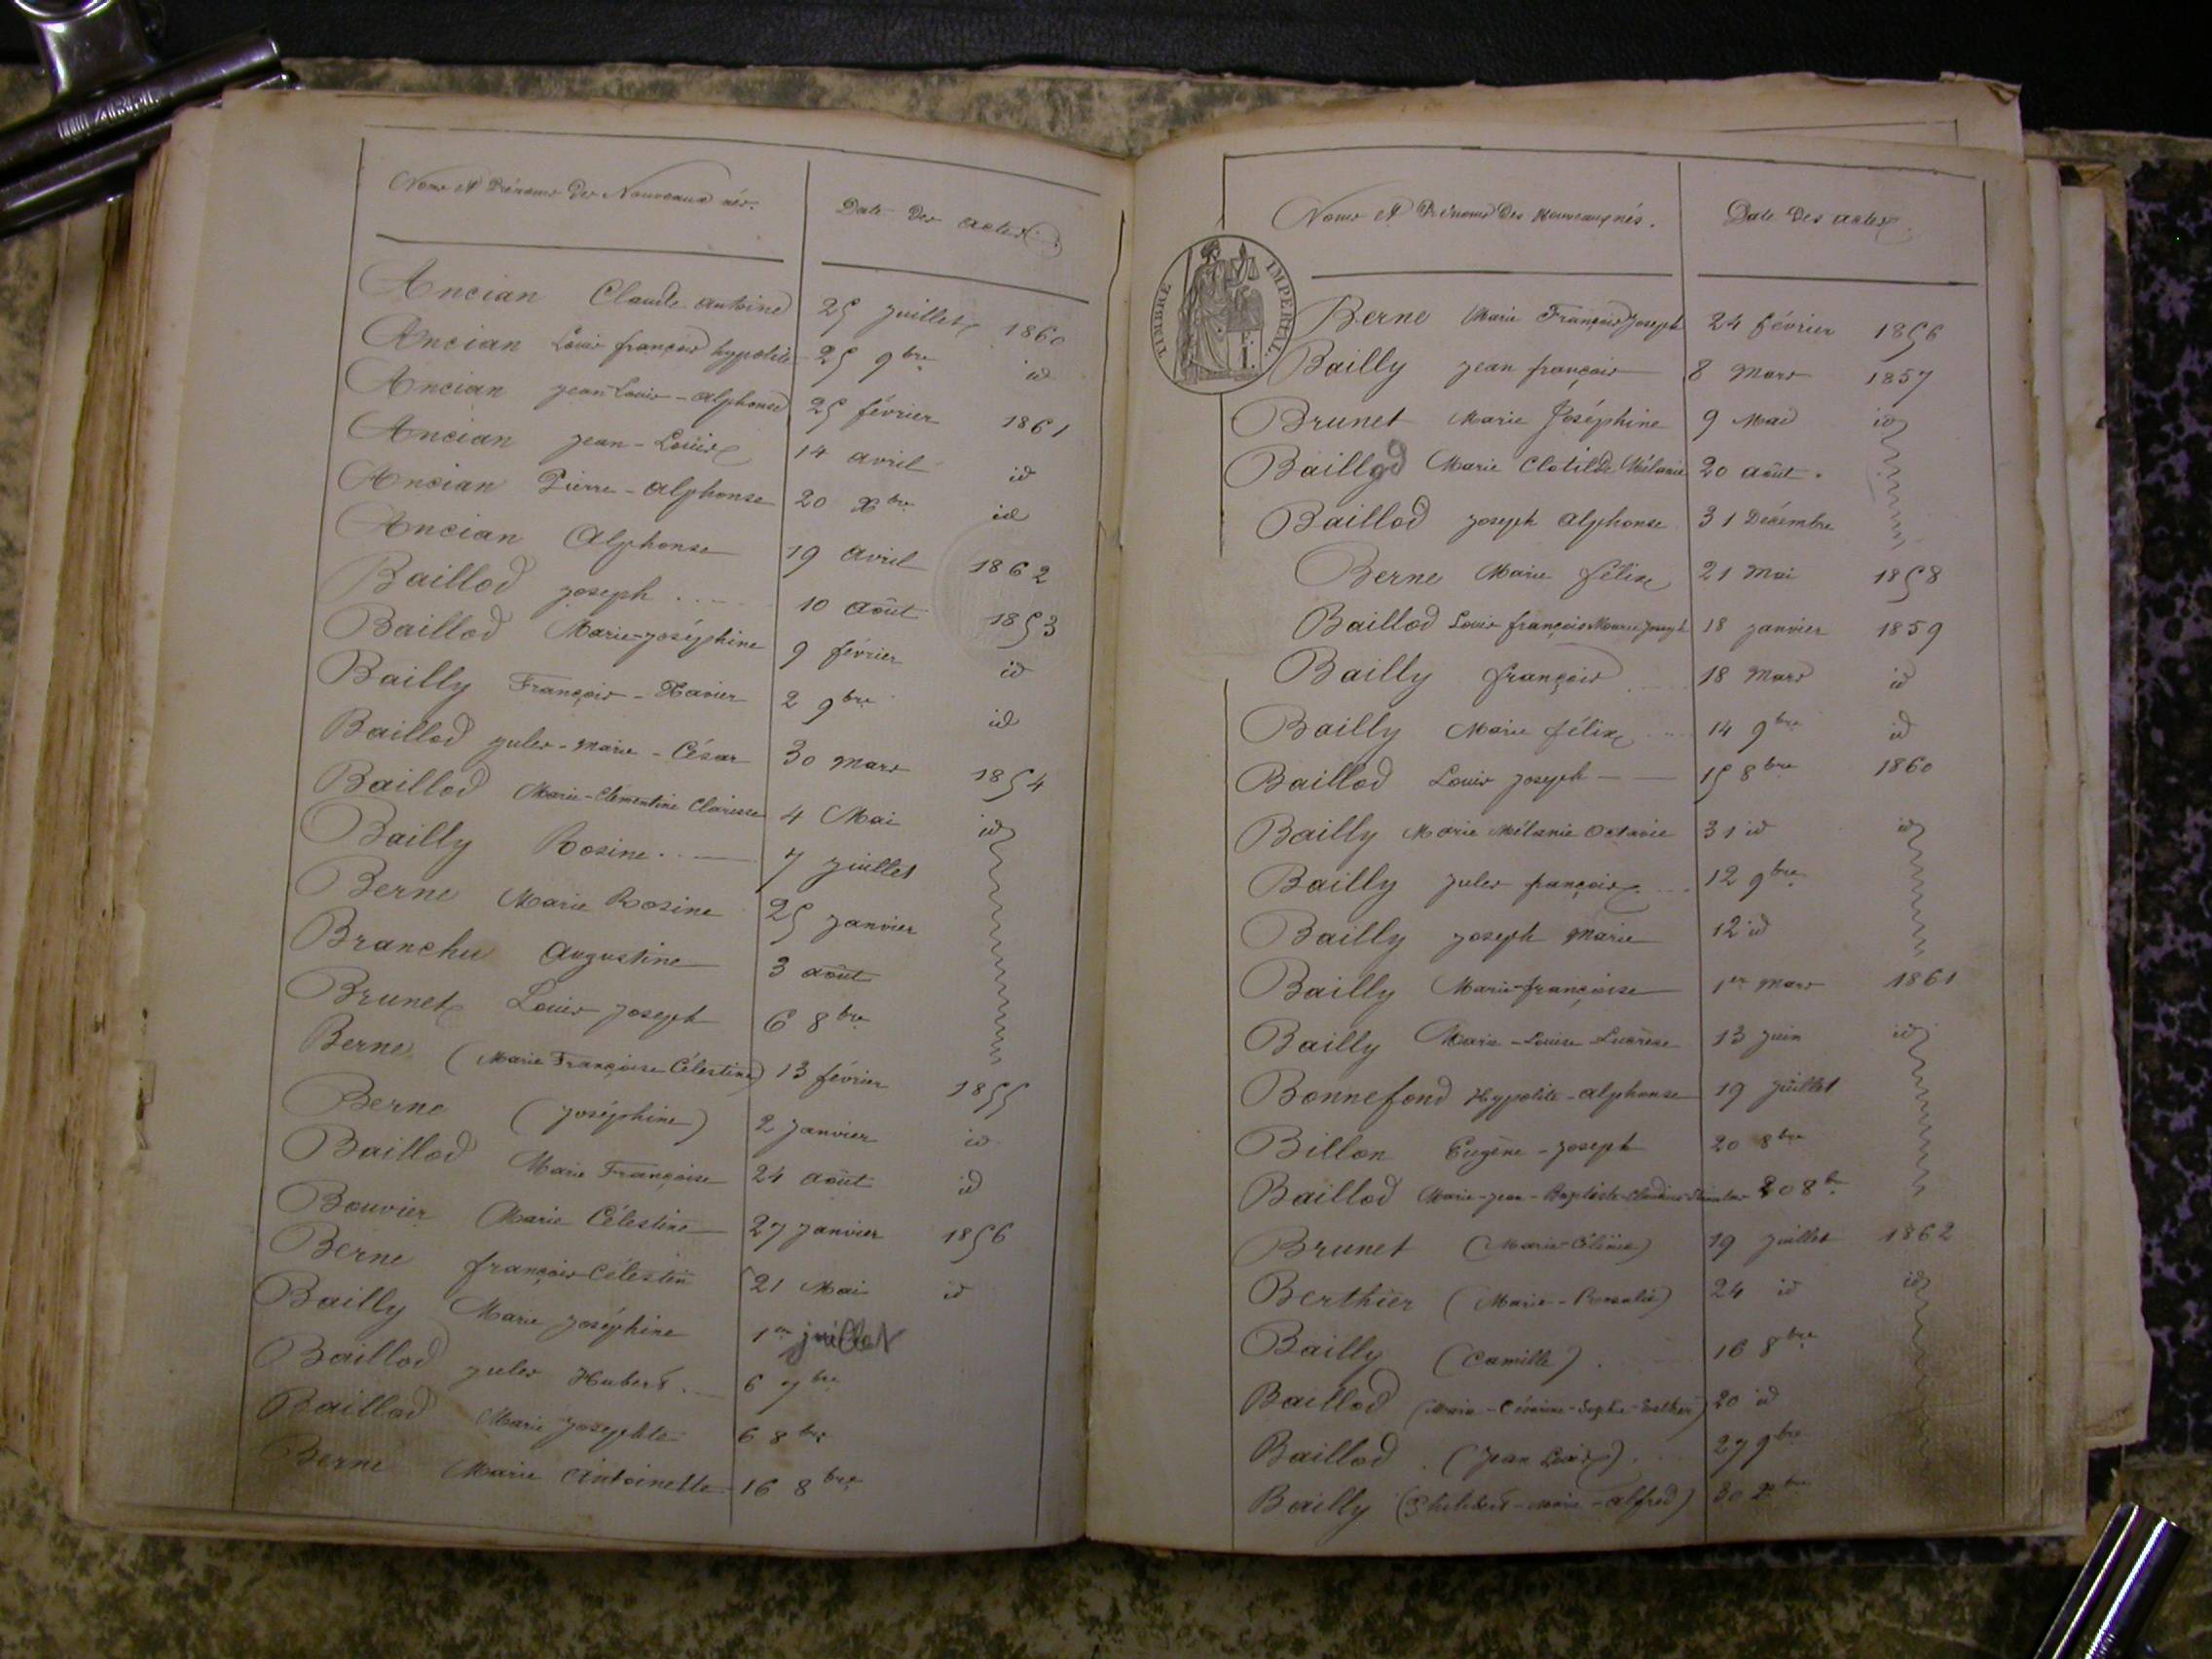 Noms et Prénoms des Nouveaux nés.
Date des actes
Ancian Claude antoine 25 juillet 1860
Ancian Louis françois hypolite 25 9bre id
Ancian jean Louis - alphonse 25 février 1861
Ancian jean - Louis 14 avril id
Ancian Pierre - alphonse 20 Xbre id
Ancian Alphonse 19 avril 1862
Baillod joseph 10 août 1853
Baillod Marie-joséphine 9 février id
Bailly François - Xavier 2 9bre id
Baillod jules - marie - César 30 mars 1854
Baillod Marie-Clementine Clarisse 4 Mai id
Bailly Rosine 7 juillet
Berne Marie Rosine 25 janvier
Branchu augustine 3 août
Brunet Louis joseph 6 8bre
Berne (Marie Françoise Célestine) 13 février 1855
Berne (joséphine) 2 janvier id
Baillod Marie Françoise 24 août id
Bouvier Marie Célestine 27 janvier 1856
Berne françois Célestin 21 Mai id
Bailly Marie joséphine 1er juillet
Baillod jules Hubert 6 7bre
Baillod Marie josephte 6 8bre
Berne Marie antoinette 16 8bre
Noms et Prénoms des Nouveaux nés.
Date des actes
TIMBRE IMPERIAL
1.
Berne Marie François joseph 24 février 1856
Bailly jean françois 8 mars 1857
Brunet Marie Joséphine 9 Mai id
Baillod Marie Clotilde Mélanie 20 août.
Baillod joseph alphonse 31 Décembre
Berne Marie félix 21 mai 1858
Baillod Louis françois joseph 18 janvier 1859
Bailly françois 18 Mars id
Bailly Marie félix 14 9bre id
Baillod Louis joseph 15 8bre 1860
Bailly Marie Mélanie Octavie 31 id id
Bailly jules françois 12 9bre
Bailly joseph marie 12 id
Bailly Marie-françoise 1er mars 1861
Bailly Marie - Louise - 13 juin id
Bonnefond Hypolite - alphonse 19 juillet
Billon Eugène - joseph 20 8bre
Baillod Marie - jean - Baptiste - Claudius 20 8bre
Brunet (Marie-) 19 juillet 1862
Berthier (Marie - Rosalie) 24 id id
Bailly (Camille) 16 8bre
Baillod (Marie - - Sophie - Esther) 20 id
Baillod (jean Louis) 27 9bre
Bailly (Philibert - marie - alfred) 30 Xbre